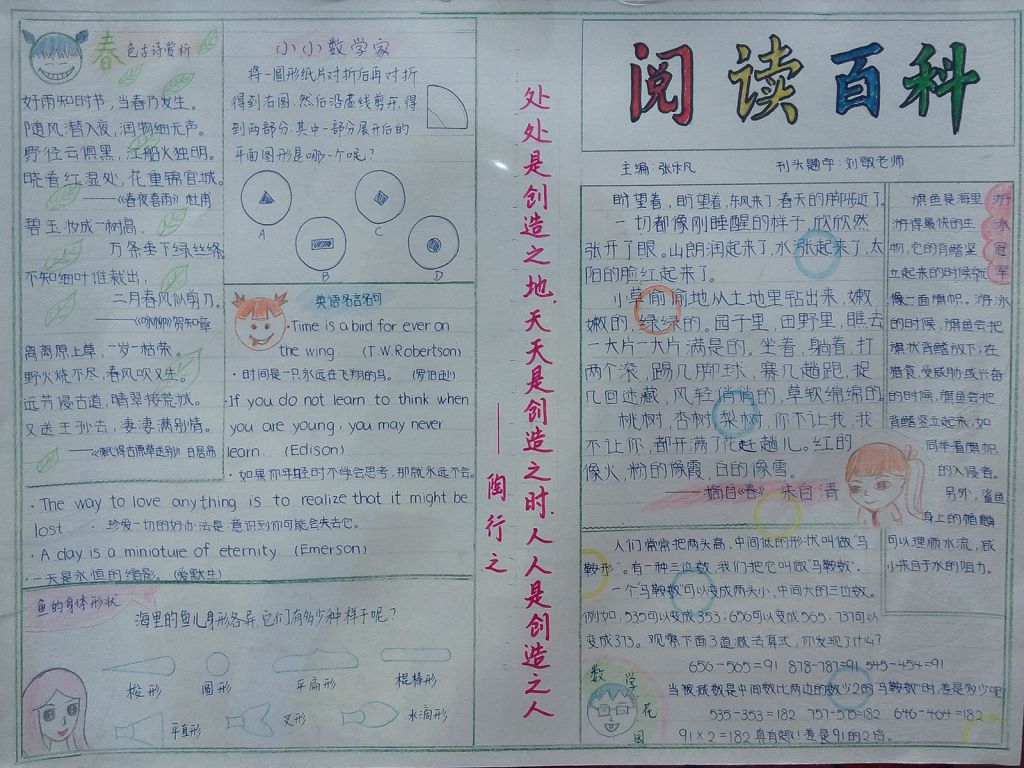 春
色古诗赏析
好雨知时节,当春乃发生。
随风潜入夜,润物细无声。
野径云俱黑,江船火独明。
晓看红湿处,花重锦官城。
——《春夜喜雨》杜甫
碧玉妆成一树高,
万条垂下绿丝绦
不知细叶谁裁出,
二月春风似剪刀。
——《咏柳》贺知章
离离原上草,一岁一枯荣。
野火烧不尽,春风吹又生。
远芳侵古道,晴翠接荒城。
又送王孙去,凄凄满别情。
——《赋得古原草送别》白居易
小小数学家
将一圆形纸片对折后再对折
得到右图,然后沿虚线剪开,得
到两部分,其中一部分展开后的
平面图形是哪一个呢?
A
B
C
D
英语名言名句
·Time is a bird for ever on
the wing. (T.W.Robertson)
·时间是一只永远在飞翔的鸟。(罗伯逊)
·If you do not learn to think when
you are young, you may never
learn. (Edison)
·如果你年轻时不学会思考,那就永远不会。
·The way to love anything is to realize that it might be
lost. ·珍爱一切的好办法是意识到你可能会失去它。
·A day is a miniature of eternity. (Emerson)
·一天是永恒的缩影。(爱默生)
鱼的身体形状
海里的鱼儿身形各异,它们有多少种样子呢?
梭形
圆形
平扁形
棍棒形
平直形
叉形
水滴形
处处是创造之地,天天是创造之时,人人是创造之人
——陶行之
阅读百科
主编:张乐凡
刊头题字:刘敬老师
盼望着,盼望着,东风来了,春天的脚步近了
一切都像刚睡醒的样子,欣欣然
张开了眼。山朗润起来了,水涨起来了,太
阳的脸红起来了。
小草偷偷地从土地里钻出来,嫩
嫩的,绿绿的。园子里,田野里,瞧去
一大片一大片满是的。坐着,躺着,打
两个滚,踢几脚球,赛几趟跑,捉
几回迷藏,风轻悄悄的,草软绵绵的
桃树,杏树,梨树,你不让我,我
不让你,都开满了花赶趟儿。红的
像火,粉的像霞,白的像雪。
——摘自《春》 朱自清
游泳冠军
旗鱼是海里
游得最快的生
物,它的背鳍竖
立起来的时候就
像一面旗帜。游泳
的时候,旗鱼会把
旗状背鳍放下;在
猎食,受威胁或兴奋
的时候,旗鱼会把
背鳍竖立起来,如
同举着旗帜
的入侵者。
另外,鲨鱼
身上的楯鳞
可以理顺水流,减
小来自于水的阻力。
人们常常把两头高,中间低的形状叫做“马
鞍形”。有一种三位数,我们把它叫做“马鞍数”.
一个“马鞍数”可以变成两头小,中间大的三位数。
例如,535可以变成353;656可以变成565,737可以
变成373。观察下面3道减法算式,你发现了什么?
656-565=91 878-787=91 545-454=91
当被减数是中间数比两边的数少2的“马鞍数”时,差是多少呢
535-353=182 757-575=182 646-464=182
91×2=182真有趣!差是91的2倍。
数学花园